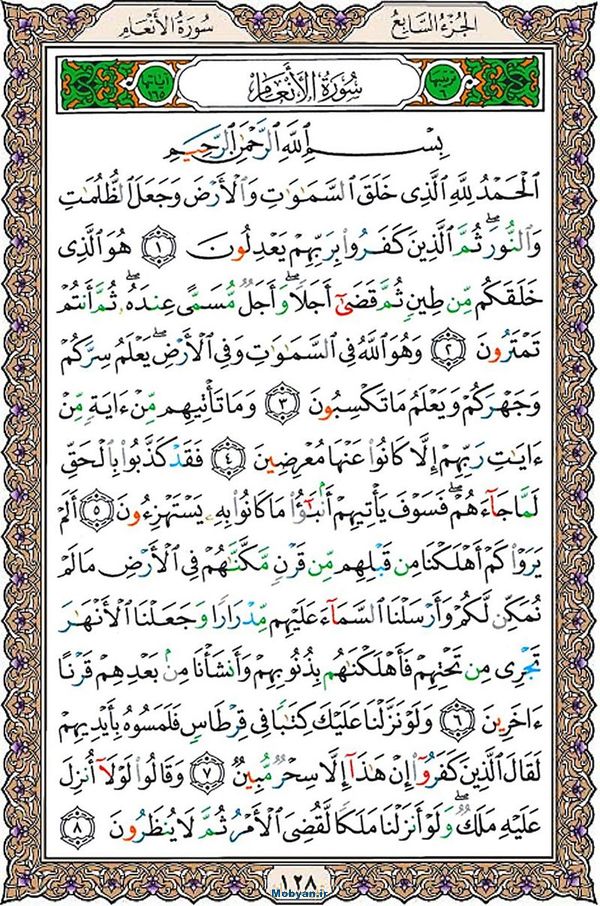 الجزء السابع
سورة الأنعام
ترتيبها ٦
سُورَةُ الأَنْعَامِ
آياتها ١٦٥
بِسْمِ ٱللَّهِ ٱلرَّحْمَٰنِ ٱلرَّحِيمِ
ٱلْحَمْدُ لِلَّهِ ٱلَّذِى خَلَقَ ٱلسَّمَٰوَٰتِ وَٱلْأَرْضَ وَجَعَلَ ٱلظُّلُمَٰتِ
وَٱلنُّورَ ۖ ثُمَّ ٱلَّذِينَ كَفَرُوا۟ بِرَبِّهِمْ يَعْدِلُونَ ١ هُوَ ٱلَّذِى
خَلَقَكُم مِّن طِينٍ ثُمَّ قَضَىٰٓ أَجَلًا ۖ وَأَجَلٌ مُّسَمًّى عِندَهُۥ ۖ ثُمَّ أَنتُمْ
تَمْتَرُونَ ٢ وَهُوَ ٱللَّهُ فِى ٱلسَّمَٰوَٰتِ وَفِى ٱلْأَرْضِ ۖ يَعْلَمُ سِرَّكُمْ
وَجَهْرَكُمْ وَيَعْلَمُ مَا تَكْسِبُونَ ٣ وَمَا تَأْتِيهِم مِّنْ ءَايَةٍ مِّنْ
ءَايَٰتِ رَبِّهِمْ إِلَّا كَانُوا۟ عَنْهَا مُعْرِضِينَ ٤ فَقَدْ كَذَّبُوا۟ بِٱلْحَقِّ
لَمَّا جَآءَهُمْ ۖ فَسَوْفَ يَأْتِيهِمْ أَنۢبَٰٓؤُا۟ مَا كَانُوا۟ بِهِۦ يَسْتَهْزِءُونَ ٥ أَلَمْ
يَرَوْا۟ كَمْ أَهْلَكْنَا مِن قَبْلِهِم مِّن قَرْنٍ مَّكَّنَّٰهُمْ فِى ٱلْأَرْضِ مَا لَمْ
نُمَكِّن لَّكُمْ وَأَرْسَلْنَا ٱلسَّمَآءَ عَلَيْهِم مِّدْرَارًا وَجَعَلْنَا ٱلْأَنْهَٰرَ
تَجْرِى مِن تَحْتِهِمْ فَأَهْلَكْنَٰهُم بِذُنُوبِهِمْ وَأَنشَأْنَا مِنۢ بَعْدِهِمْ قَرْنًا
ءَاخَرِينَ ٦ وَلَوْ نَزَّلْنَا عَلَيْكَ كِتَٰبًا فِى قِرْطَاسٍ فَلَمَسُوهُ بِأَيْدِيهِمْ
لَقَالَ ٱلَّذِينَ كَفَرُوٓا۟ إِنْ هَٰذَآ إِلَّا سِحْرٌ مُّبِينٌ ٧ وَقَالُوا۟ لَوْلَآ أُنزِلَ
عَلَيْهِ مَلَكٌ ۖ وَلَوْ أَنزَلْنَا مَلَكًا لَّقُضِىَ ٱلْأَمْرُ ثُمَّ لَا يُنظَرُونَ ٨
١٢٨
Mobyan.ir